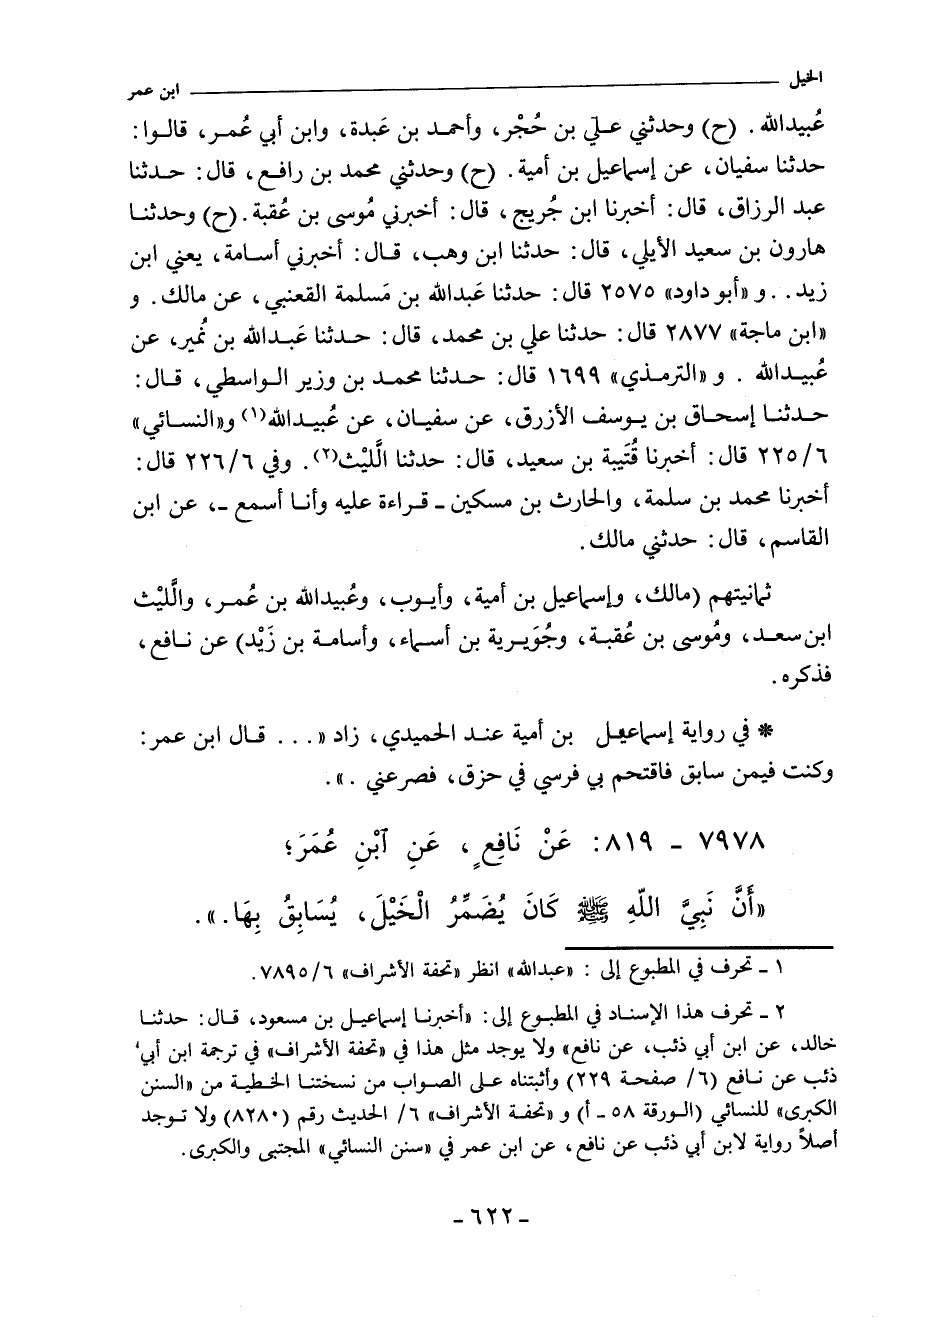 الخيل ـــــ ابن عمر
عُبيدالله . (ح) وحدثني علي بن حُجْر، وأحمد بن عَبدة، وابن أبي عُمر، قالوا:
حدثنا سفيان، عن إسماعيل بن أمية. (ح) وحدثني محمد بن رافع، قال: حدثنا
عبد الرزاق، قال: أخبرنا ابن جُريج، قال: أخبرني مُوسى بن عُقبة. (ح) وحدثنا
هارون بن سعيد الأيلي، قال: حدثنا ابن وهب، قال: أخبرني أسامة، يعني ابن
زيد. . و «أبو داود» ٢٥٧٥ قال: حدثنا عَبدالله بن مَسلمة القعنبي، عن مالك. و
«ابن ماجة» ٢٨٧٧ قال: حدثنا علي بن محمد، قال: حدثنا عَبدالله بن نُمير، عن
عُبيدالله . و «الترمذي» ١٦٩٩ قال: حدثنا محمد بن وزير الواسطي، قال:
حدثنا إسحاق بن يوسف الأزرق، عن سفيان، عن عُبيدالله(١) و«النسائي»
٢٢٥/٦ قال: أخبرنا قُتَيبة بن سعيد، قال: حدثنا الَّليْث(٢). وفي ٢٢٦/٦ قال:
أخبرنا محمد بن سلمة، والحارث بن مسكين ـ قراءة عليه وأنا أسمع ـ، عن ابن
القاسم، قال: حدثني مالك.
ثمانيتهم (مالك، وإسماعيل بن أمية، وأيوب، وعُبيدالله بن عُمر، والَّليْث
ابن سعد، ومُوسى بن عُقبة، وجُوَيرية بن أسماء، وأسامة بن زَيْد) عن نافع،
فذكره.
* في رواية إسماعيل بن أمية عند الحميدي، زاد «... قال ابن عمر:
وكنت فيمن سابق فاقتحم بي فرسي في حزق، فصرعني .».
٧٩٧٨ ـ ٨١٩: عَنْ نَافِعٍ، عَنِ ٱبْنِ عُمَرَ؛
«أَنَّ نَبِيَّ اللّهِ ﷺ كَانَ يُضَمِّرُ الْخَيْلَ، يُسَابِقُ بِهَا.».
١ ـ تحرف في المطبوع إلى: «عبدالله» انظر «تحفة الأشراف» ٧٨٩٥/٦.
٢ ـ تحرف هذا الإسناد في المطبوع إلى: «أخبرنا إسماعيل بن مسعود، قال: حدثنا
خالد، عن ابن أبي ذئب، عن نافع» ولا يوجد مثل هذا في «تحفة الأشراف» في ترجمة ابن أبي
ذئب عن نافع (٦/ صفحة ٢٢٩) وأثبتناه على الصواب من نسختنا الخطية من «السنن
الكبرى» للنسائي (الورقة ٥٨ ـ أ) و «تحفة الأشراف» ٦/ الحديث رقم (٨٢٨٠) ولا توجد
أصلاً رواية لابن أبي ذئب عن نافع، عن ابن عمر في «سنن النسائي» المجتبى والكبرى.
ـ ٦٢٢ ـ